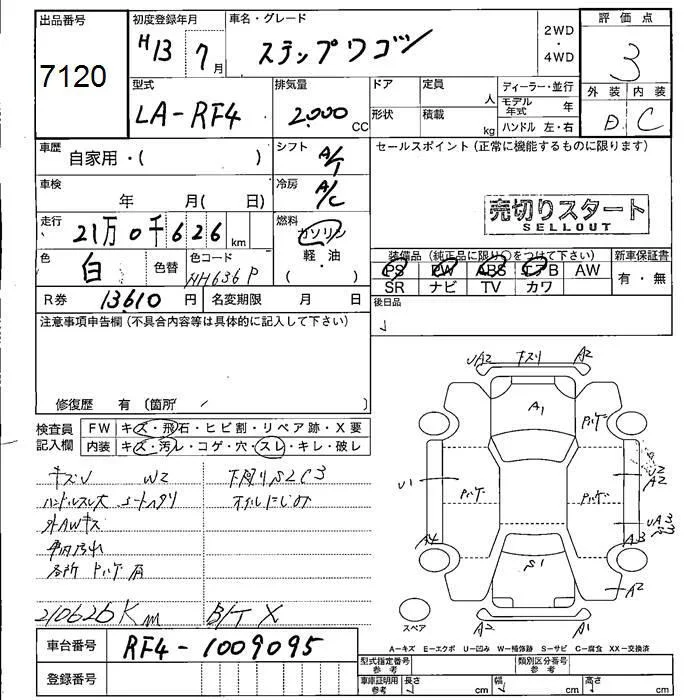 出品番号
7120
初度登録年月
H13 7月
車名・グレード
ステップワゴン
2WD
・
4WD
評価点
3
外装 内装
D C
型式
LA-RF4
排気量
2,000 CC
ドア
定員
人
形状
積載
kg
ディーラー・並行
モデル年式 年
ハンドル 左・右
車歴
自家用・( )
シフト
A/T
セールスポイント (正常に機能するものに限ります)
車検
年 月( 日)
冷房
A/C
売切りスタート
SELLOUT
走行
21万0千626 km
燃料
ガソリン
・
軽・油
( )
色
白
色替
色コード
NH636P
装備品(純正品に限り○をつけて下さい)
PS PW ABS エアB AW
SR ナビ TV カワ
新車保証書
有・無
R券 13610円
名変期限 月 日
後日品
注意事項申告欄(不具合内容等は具体的に記入して下さい)
修復歴 有 (箇所 )
検査員
記入欄
FW キズ・飛石・ヒビ割・リペア跡・X要
内装 キズ・汚レ・コゲ・穴・スレ・キレ・破レ
キズU W2
下廻りS2C3
ハンドルスレ大
オイルにじみ
外AWキス
車内汚れ
各所 Pハゲ有
210626Km B/T X
車台番号 RF4-1009095
登録番号
UA2 下スリ A2
A1
Pハゲ
U1
Pハゲ
Pハゲ
U2
A2
UA
A4
A3
S1
A2
スペア
A2 A1
A−キズ E−エクボ U−凹み W−補修跡 S−サビ C−腐食 XX−交換済
型式指定番号
参考
類別区分番号
参考
車庫証明用
参考
長さ cm 幅 cm 高さ cm